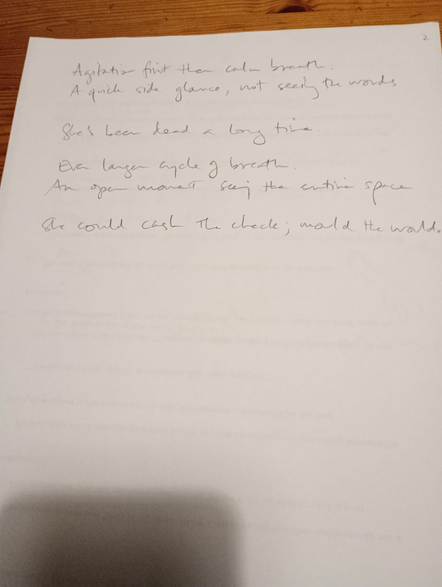 2
Agitation first then calm breath.
A quick side glance, not seeing the words
She's been dead a long time.
Ever larger cycle of breath.
An open moment seeing the entire space
She could cash the check; mould the world.